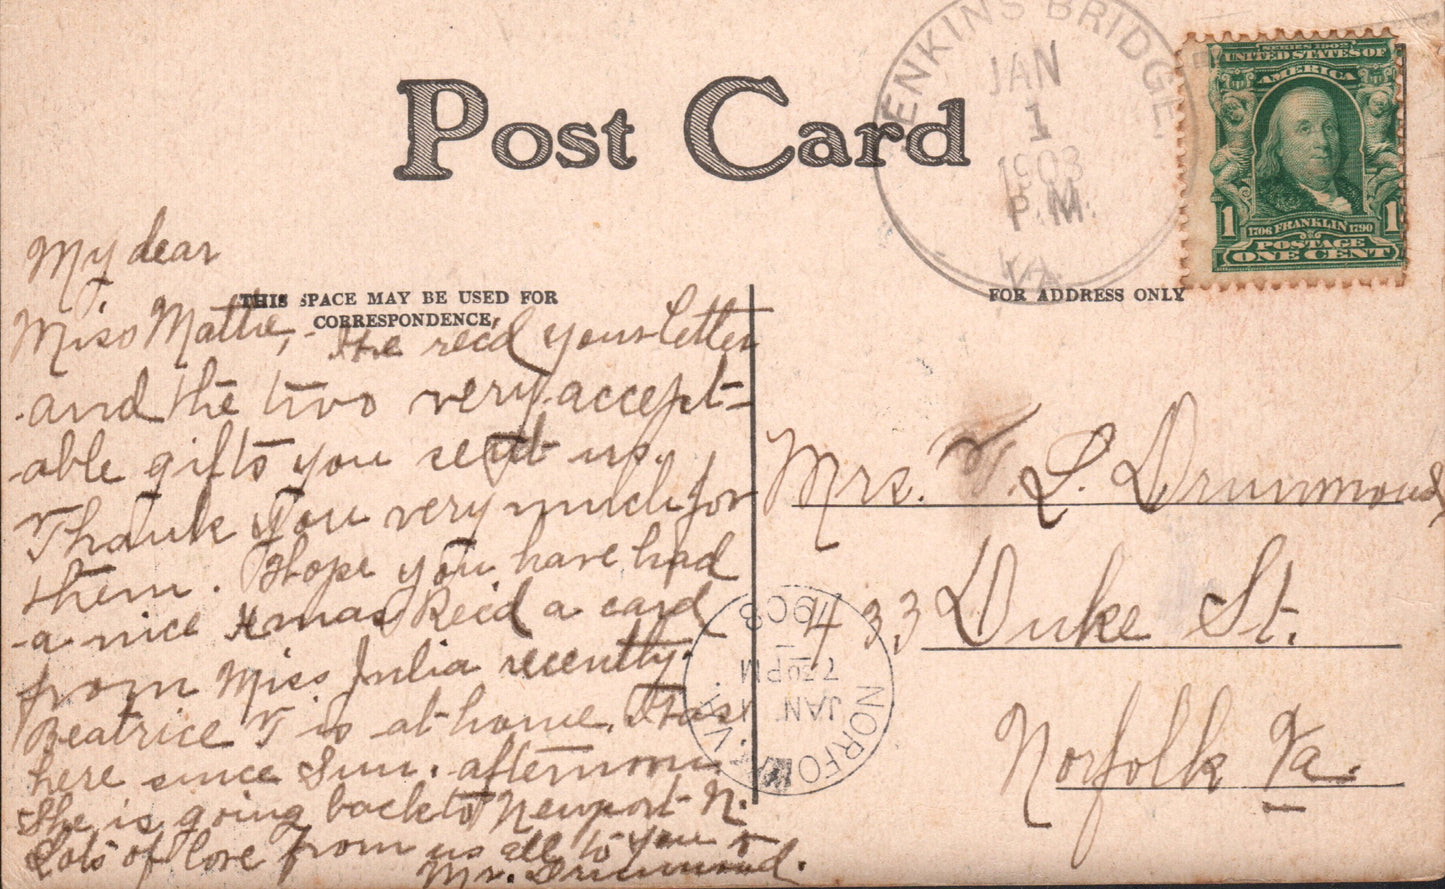 Post Card
JENKINS BRIDGE
JAN
1
1908
P.M.
VA.
SERIES 1902
UNITED STATES OF
AMERICA
1 1706 FRANKLIN 1790 1
POSTAGE
ONE CENT
THIS SPACE MAY BE USED FOR
CORRESPONDENCE,
FOR ADDRESS ONLY
My dear
Miss Mattie, recd your letter
and the two very accept-
able gifts you sent us.
Thank you very much for
them. I hope you have had
a nice Xmas. Recd a card
from Miss Julia recently.
Beatrice T is at home. Has
here since Sun. afternoon
She is going back to Newport N.
Lots of love from us all to you &
Mr. Drummond.
Mrs. T. L. Drummond
433 Duke St.
Norfolk Va.
NORFOLK, VA.
JAN 1
7 30 PM
1908